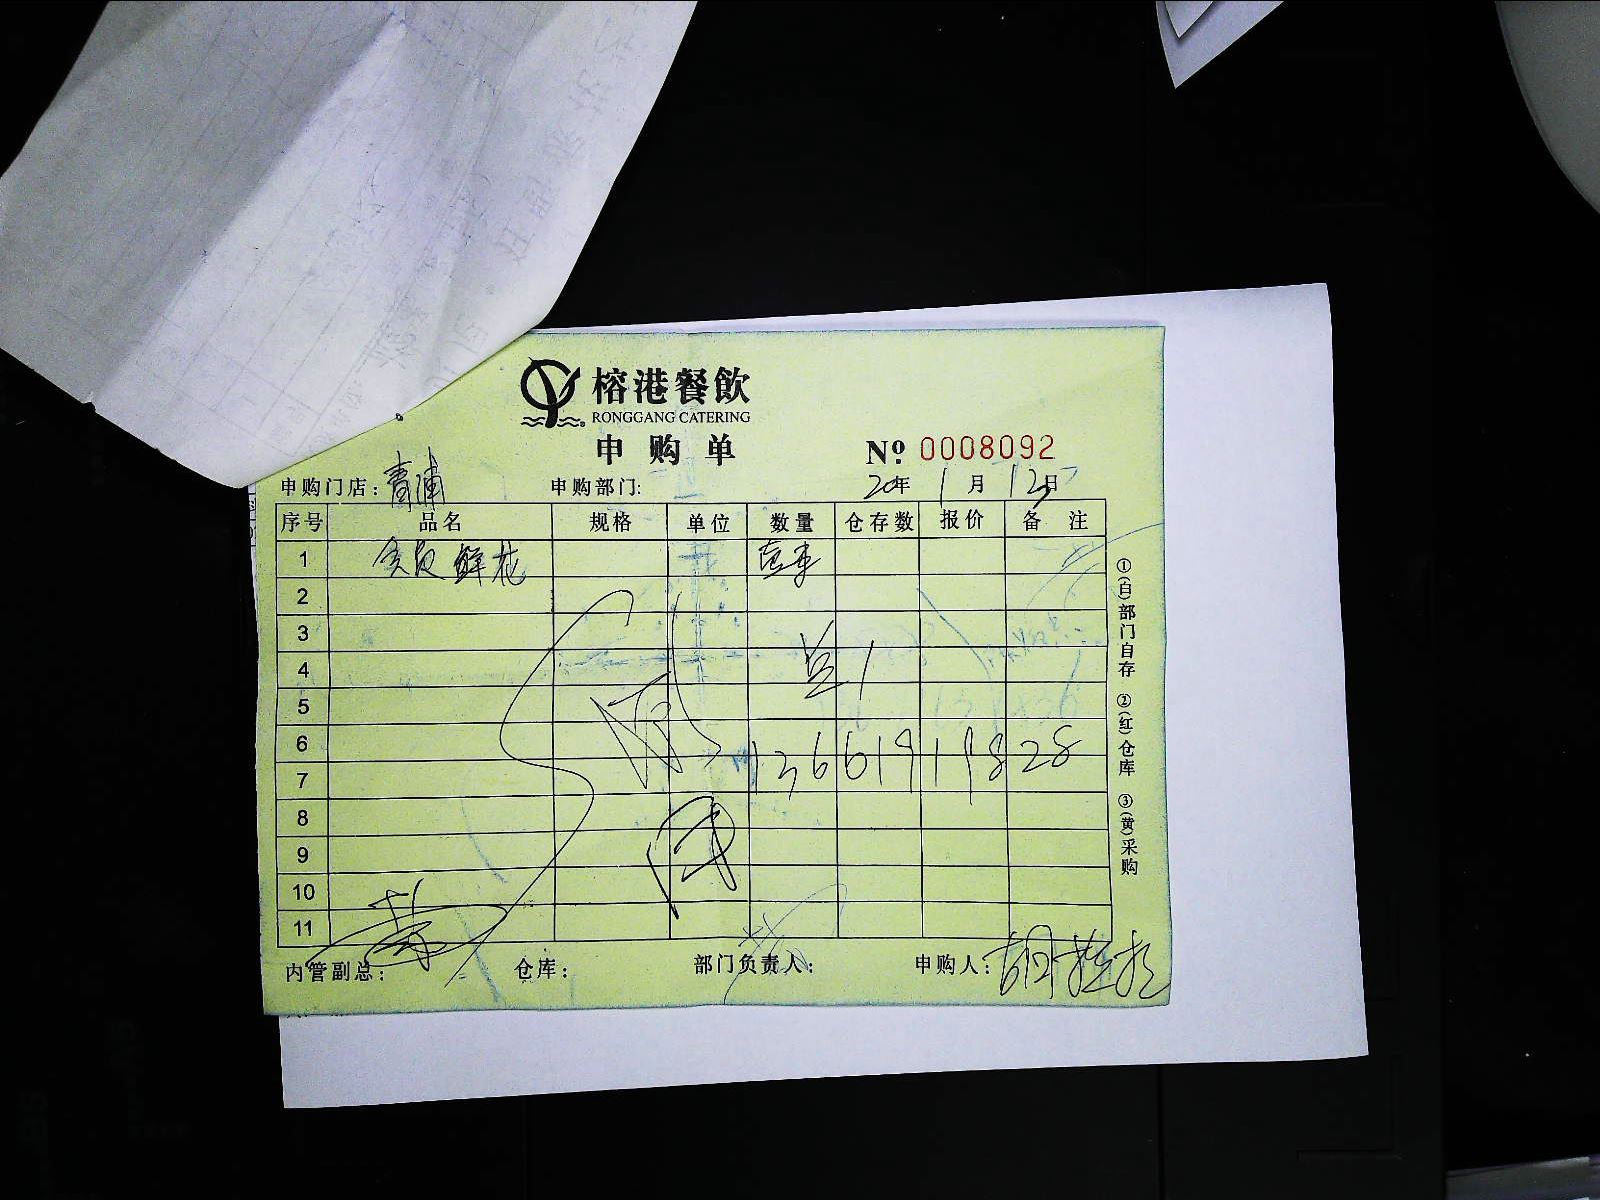 榕港餐飲
RONGGANG CATERING
申购单
№ 0008092
申购门店：青浦 申购部门： 20年 1月 12日
序号 品名 规格 单位 数量 仓存数 报价 备 注
1 鲜花
2
3
4
5
6 13661919828
7
8
9
10
11
内管副总： 仓库： 部门负责人： 申购人：胡
①(白)部门自存 ②(红)仓库 ③(黄)采购